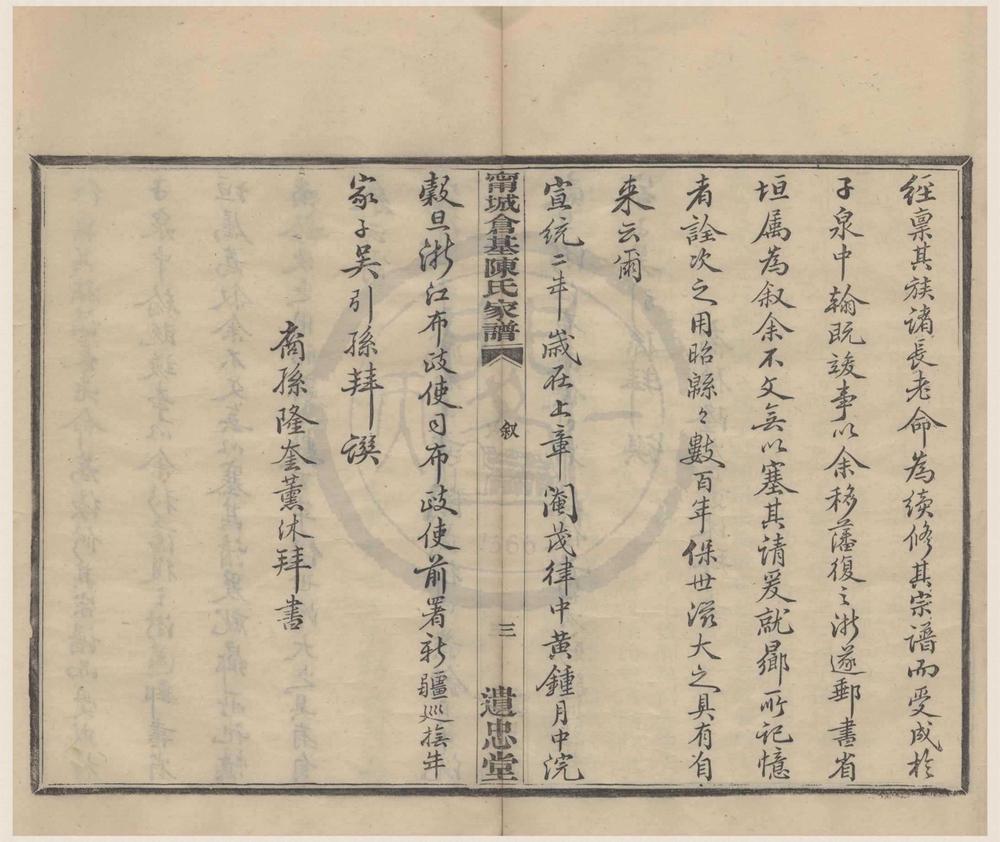 經稟其族諸長老命為續修其宗譜而受成於
子泉中翰既竣事以余移藩復之浙遂郵書省
垣属為叙余不文無以塞其請爰就曏所記憶
者詮次之用昭緜〻數百年保世滋大之具有自
来云爾
宣統二年歲在上章閹茂律中黃鍾月中浣
穀旦浙江布政使司布政使前署新疆巡撫年
家子吳引孫拜譔
裔孫隆奎薰沐拜書
甯城倉基陳氏家譜
叙
三
遺忠堂